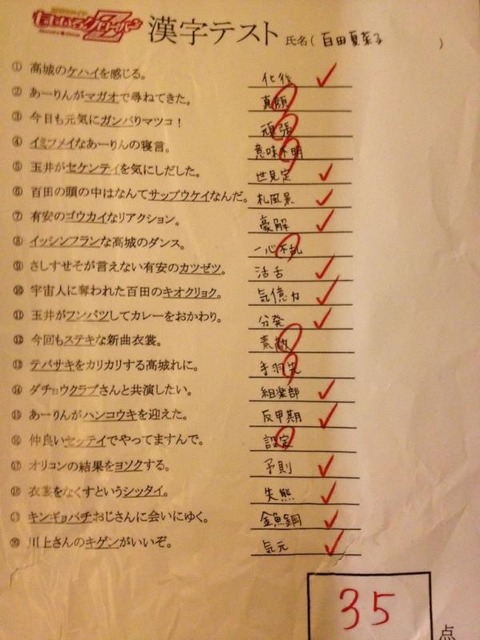 ももいろクローバーZ 漢字テスト 氏名( 百田夏菜子 )
① 高城のケハイを感じる。 化代
② あーりんがマガオで尋ねてきた。 真顔
③ 今日も元気にガンバりマツコ! 頑張
④ イミフメイなあーりんの寝言。 意味不明
⑤ 玉井がセケンテイを気にしだした。 世見定
⑥ 百田の頭の中はなんてサップウケイなんだ。 札風景
⑦ 有安のゴウカイなリアクション。 豪解
⑧ イッシンフランな高城のダンス。 一心不乱
⑨ さしすせそが言えない有安のカツゼツ。 活舌
⑩ 宇宙人に奪われた百田のキオクリョク。 気億力
⑪ 玉井がフンパツしてカレーをおかわり。 分発
⑫ 今回もステキな新曲衣裳。 素敵
⑬ テバサキをカリカリする高城れに。 手羽先
⑭ ダチョウクラブさんと共演したい。 組楽部
⑮ あーりんがハンコウキを迎えた。 反甲期
⑯ 仲良いセッテイでやってますんで。 設定
⑰ オリコンの結果をヨソクする。 予則
⑱ 衣裳をなくすというシッタイ。 失熊
⑲ キンギョバチおじさんに会いにゆく。 金魚銅
⑳ 川上さんのキゲンがいいぞ。 気元
35 点